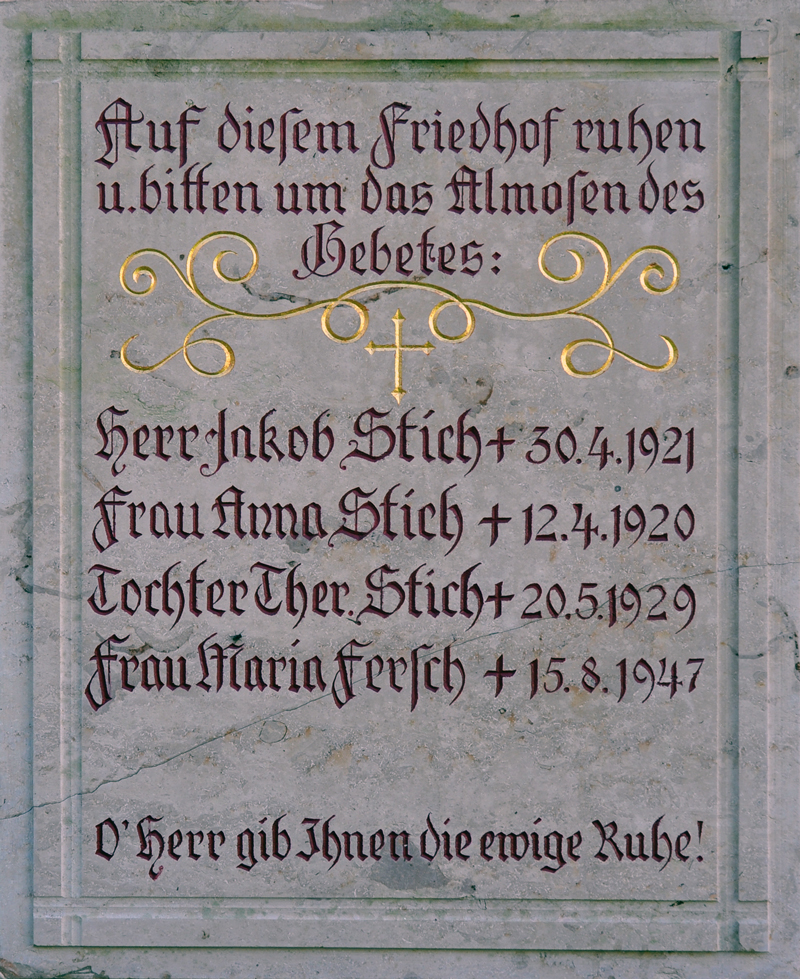 Auf dieſem Friedhof ruhen
u. bitten um das Almoſen des
Gebetes:
Herr Jakob Stich + 30.4.1921
Frau Anna Stich + 12.4.1920
Tochter Ther. Stich + 20.5.1929
Frau Maria Ferſch + 15.8.1947
O' Herr gib Ihnen die ewige Ruhe!